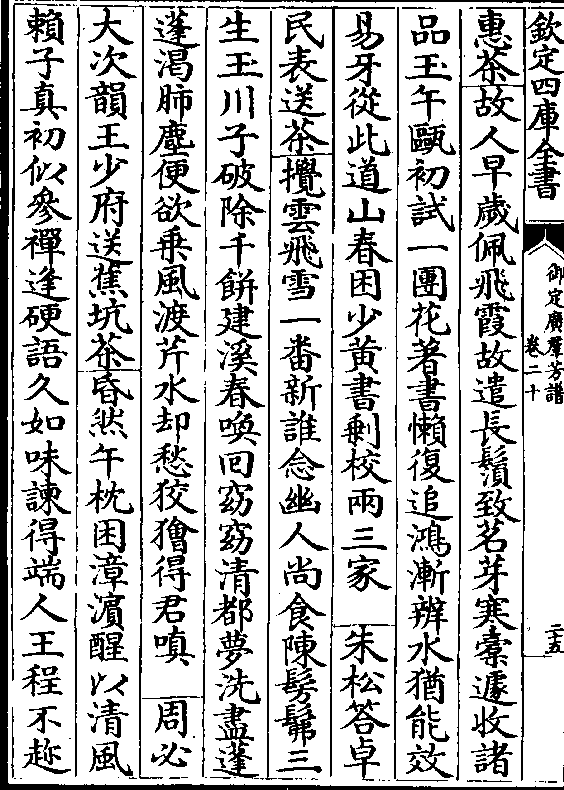 欽定四庫全書
御定廣羣芳譜
卷二十
二十五
惠茶故人早歲佩飛霞故遣長鬚致茗芽寒橐遽收諸
品玉午甌初試一團花著書懶復追鴻漸辨水猶能效
易牙從此道山春困少黄書剰校兩三家 朱松答卓
民表送茶攪雲飛雪一番新誰念幽人尚食陳髣髴三
生玉川子破除千餅建溪春喚回窈窈清都夢洗盡蓬
蓬渴肺塵便欲乗風渡芹水却愁狡獪得君嗔 周必
大次韻王少府送蕉坑茶昏然午枕困漳濱醒以清風
賴子真初似參禪逢硬語久如味諫得端人王程不趂